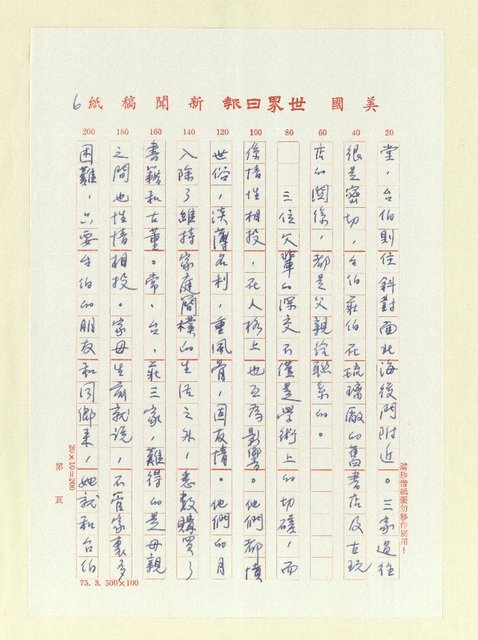 美國世界日報新聞稿紙 6
20 40 60 80 100 120 140 160 180 200
堂，台伯則住斜對面北海後門附近。三家過往
很是密切，台伯莊伯在琉璃廠的舊書店及古玩
店的關係，都是父親給聯系的。
三位父輩的深交不僅是學術上的切磋，而
係情性相投，在人格上也互為影響。他們都憤
世俗，淡薄名利，重風骨，固友情。他們的月
入除了維持家庭簡樸的生活之外，悉數購買了
書籍和古董。常，台，莊三家，難得的是母親
之間也性情相投。家母生前就說，不管家裏多
困難，只要台伯的朋友和同鄉來，她就和台伯
請珍惜紙張勿移作別用！
20×10=200
第 頁
75.3.500×100